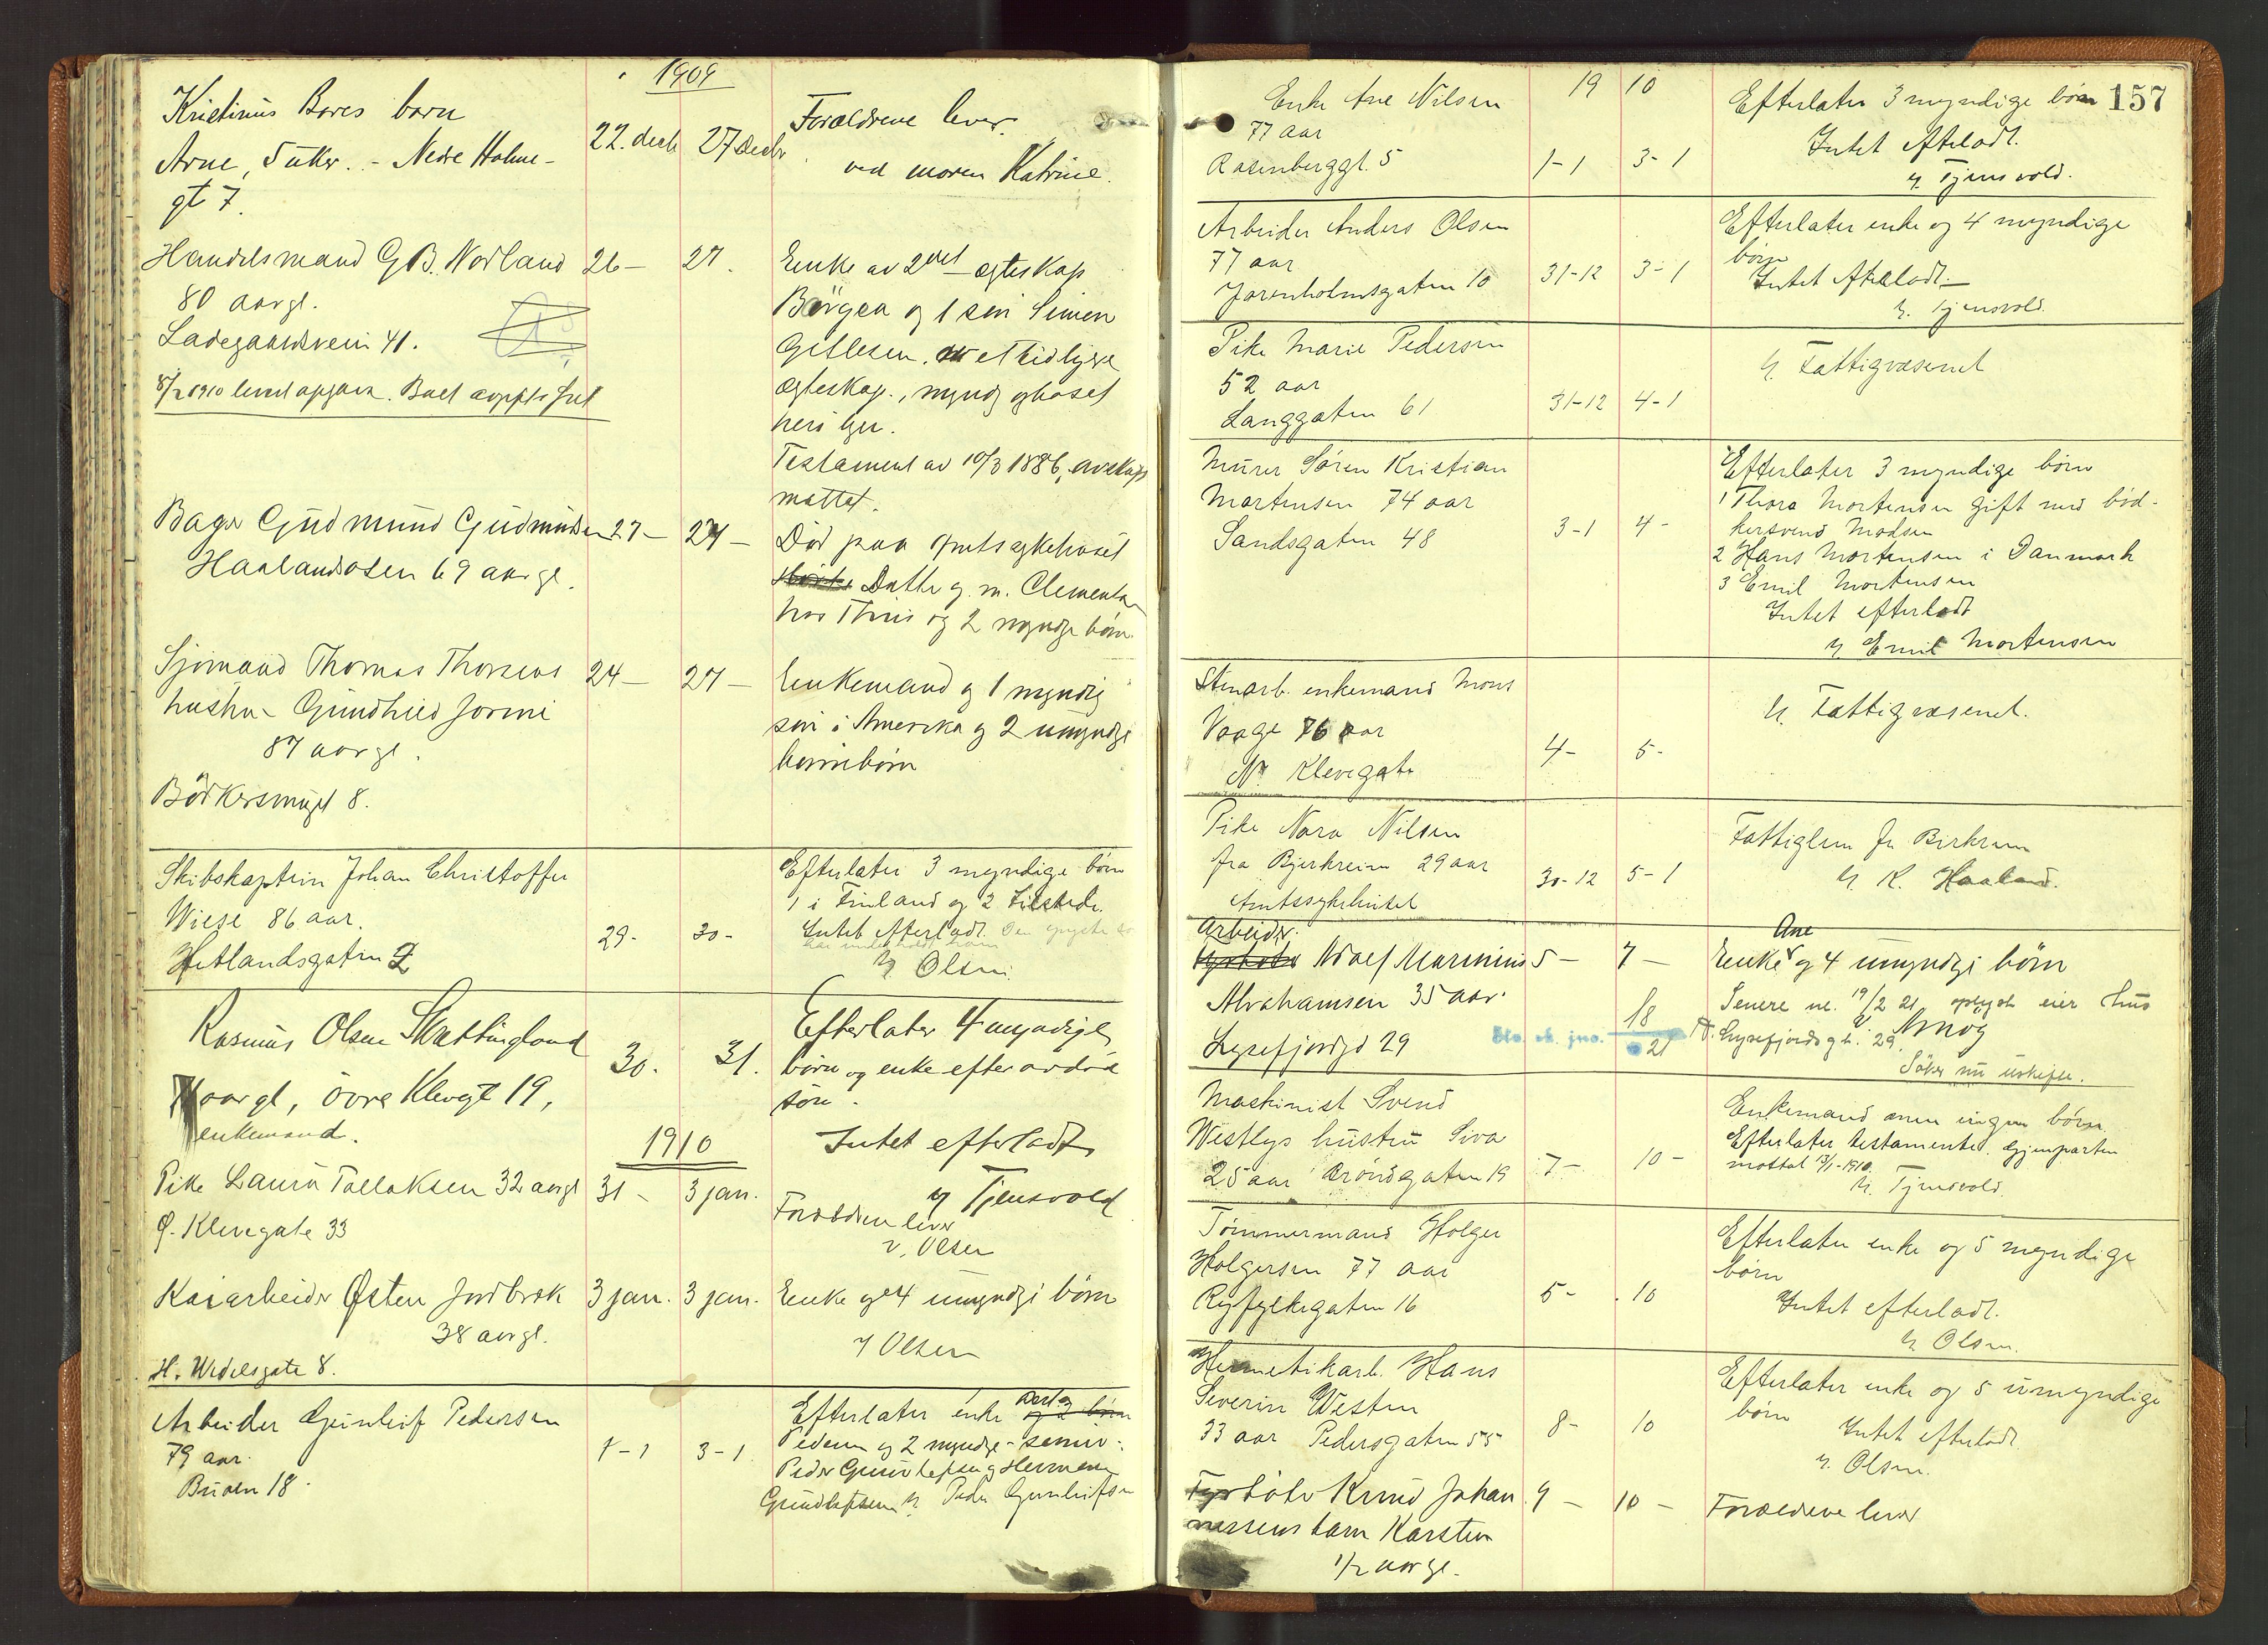 1909
Kristinus Bores barn
Arne, 5 uker. - Nedre Holme-
gt 7.
22. decb 27 decbr
Forældrene lever.
ved moren Katrine.
Handelsmand G.B. Norland
80 aargl.
Ladegaardsvein 41.
8/2 1910 levert opgave. Boet
26 - 27.
Enke av 2det egteskap
Börgea og 1 søn Simon
Gitlesen. av et tidligere
ægteskap., myndig og bosat
her i byen.
Testament av 10/3 1886, avskrift
mottat.
Bager Gudmund Gudmundsen
Haalandsosen 69 aar gl.
27 - 27 -
Død paa Amtssykehuset
Datter g. m. Clementsen
hos Thiis og 2 myndige børn.
Sjømand Thomas Thorsens
hustru Gundhild Jorine
87 aar gl.
Bödkersmuget 8.
24 - 27 -
Enkemand og 1 myndig
søn i Amerika og 2 umyndige
børnebørn
Skibskaptein Johan Christoffer
Wiese 86 aar.
Hetlandsgaten 2
29. 30 -
Efterlater 3 myndige børn
1 i Finland og 2 tilstede.
Intet efterladt.
har underholdt ham
v/ Olsen.
Rasmus Olsen Skættingland
aar gl, øvre Klevegt 19,
enkemand.
30. 31.
Efterlater 4 myndige
børn og enke efter avdød
søn.
Intet efterladt
v/ Tjensvold
1910
Pike Laura Tallaksen 32 aargl
Ø. Klevegate 33
31 - 3 jan.
Forældren lever
v, Olsen
Kaiarbeider Østen Jordbræk
38 aargl.
H. Wedelsgate 8.
3 jan. 3 jan.
Enke og 4 umyndige børn
v/ Olsen
Arbeider Gunleif Pedersen
79 aar.
Buøen 18.
1 - 1 3 - 1
Efterlater enke og 2 børn
Pedersen og 2 myndige sønner:
Peder Gunleifsen og Hermann
Gundleifsen v/ Peder Gunleifsen
157
19 10
Enke Ane Nilsen
77 aar
Rosenberggt. 5
1 - 1 3 - 1
Efterlater 3 myndige børn
Intet efterladt.
v/ Tjensvold.
Arbeider Anders Olsen
77 aar
Jorenholmsgaten 10
31-12 3 - 1
Efterlater enke og 4 myndige
børn
Intet efterladt.
v/ Tjensvold.
Pike Marie Pedersen
52 aar
Langgaten 61
31-12 4-1
v/ Fattigvæsenet
Murer Søren Kristian
Mortensen 74 aar
Sandsgaten 48
3-1 4 -
Efterlater 3 myndige børn
1 Thora Mortensen gift med bød-
kersvend Madsen
2 Hans Mortensen i Danmark
3 Emil Mortensen
Intet efterladt
v/ Emil Mortensen
Stenarb. enkemand Mons
Vaage 76 aar
N. Klevegate
4- 5-
v/ Fattigvæsenet.
Pike Nora Nilsen
fra Bjerkreim 29 aar
Amtssykehuset
30-12 5-1
Fattiglem fra Birkrem
v/ K. Haaland.
Arbeider
Adolf Marinius
Abrahamsen 35 aar.
Lysefjordgt 29
5 - 7 -
Ane
Enke og 4 umyndige børn
Senere 19/2 21 oplyst eier hus
Lysefjordsgt. 29.
Søker nu uskifte.
18
21
Maskinist Svend
Westlys hustru Siva
25 aar Brøndgaten 19
7 - 10 -
Enkemand men ingen børn.
Efterlater testamente. Gjenparten
mottat 13/1-1910.
v/ Tjensvold.
Tømmermand Holger
Holgersen 77 aar
Ryfylkegaten 16
5 - 10
Efterlater enke og 5 myndige
børn
Intet efterladt.
v/ Olsen.
Hermetikarb. Hans
Severin Westen
33 aar Pedersgaten 55
8 - 10
Efterlater enke og 5 umyndige
børn
Intet efterladt.
v. Olsen.
Fyrbøter Knud Johan
nessens barn Karsten
1/2 aar gl.
9 - 10 -
Forældrene lever